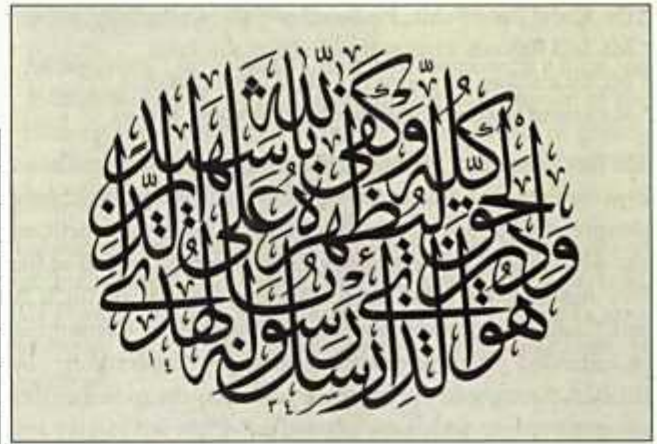 هو الذي أرسل رسوله بالهدى
ودين الحق ليظهره على الدين
كله وكفى بالله شهيدا